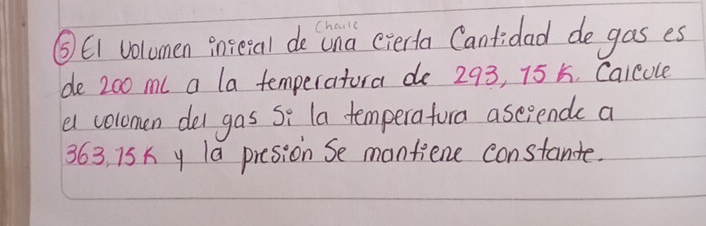 Charle
⑤ El volumen inicial de una cierta Cantidad de gas es
de 200 mL a la temperatura de 293,15 K. Calcule
el volumen del gas si la temperatura asciende a
363,15 K y la presión se mantiene constante.